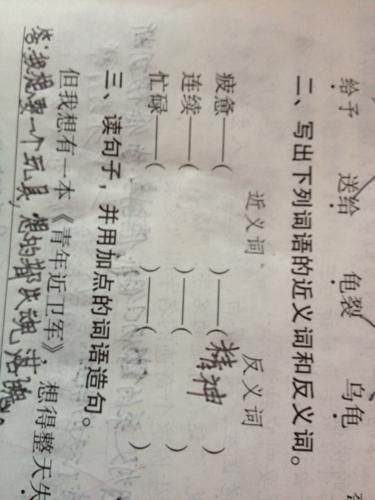 给予 送给 龟裂 乌龟
二、写出下列词语的近义词和反义词。
近义词 反义词
疲惫——( )——(精神)
连续——( )——( )
忙碌——( )——( )
三、读句子，并用加点的词语造句。
但我想有一本《青年近卫军》想得整天失
我想要一个玩具，想的都失魂落魄。